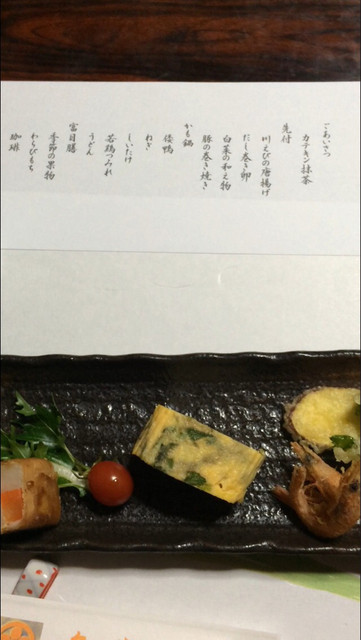 ごあいさつ
カテキン抹茶
先付
川えびの唐揚げ
だし巻き卵
白菜の和え物
豚の巻き焼き
かも鍋
倭鴨
ねぎ
しいたけ
若鶏つみれ
うどん
富目膳
季節の果物
わらびもち
珈琲